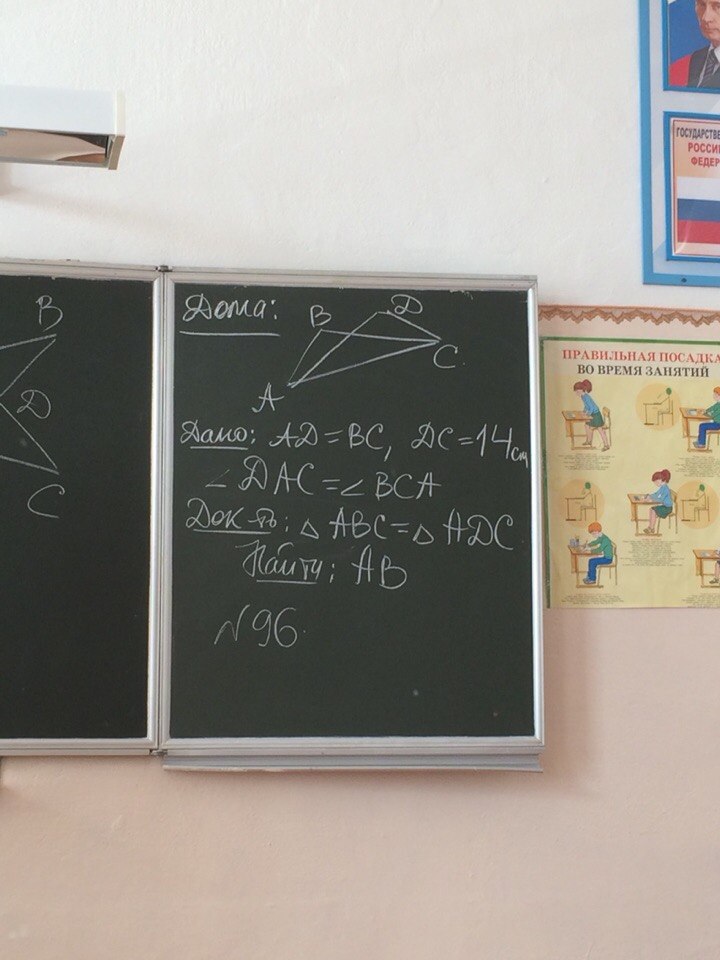 B
D
C
Дома:
B
D
C
A
Дано: AD=BC, DC=14см
∠DAC=∠BCA
Док-ть: △ABC=△ADC
Найти: AB
№96.
ГОСУДАРСТВЕ
РОССИ
ФЕДЕР
ПРАВИЛЬНАЯ ПОСАДКА
ВО ВРЕМЯ ЗАНЯТИЙ